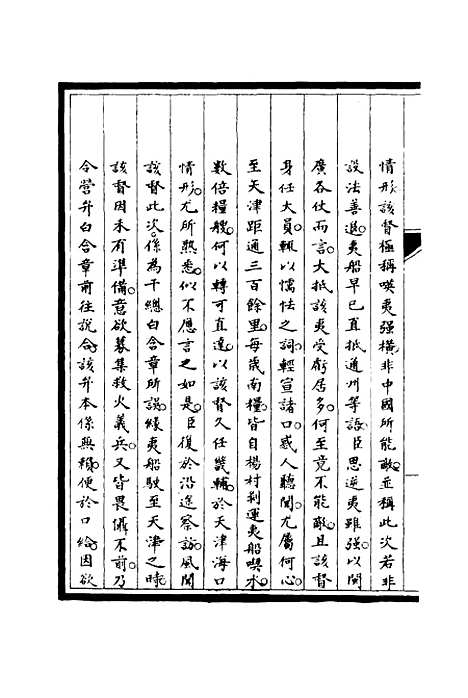 情形該督極稱㖞夷强橫非中國所能敵並稱此次若非
設法善退夷船早已直抵通州等語臣思逆夷雖强以閩
廣各仗而言大抵該夷受虧居多何至竟不能敵且該督
身任大員輒以懦怯之詞輕宣諸口惑人聽聞尤屬何心
至天津距通三百餘里每歲南糧皆自楊村剝運夷船喫水
數倍糧艘何以轉可直達以該督久任畿輔於天津海口
情形尤所熟悉似不應言之如是臣復於沿途察訪風聞
該督此次係為千總白含章所誤緣夷船駛至天津之時
該督因未有準備意欲募集救火義兵又皆畏懾不前乃
令營弁白含章前往說合該弁本係無賴便於口給因欲